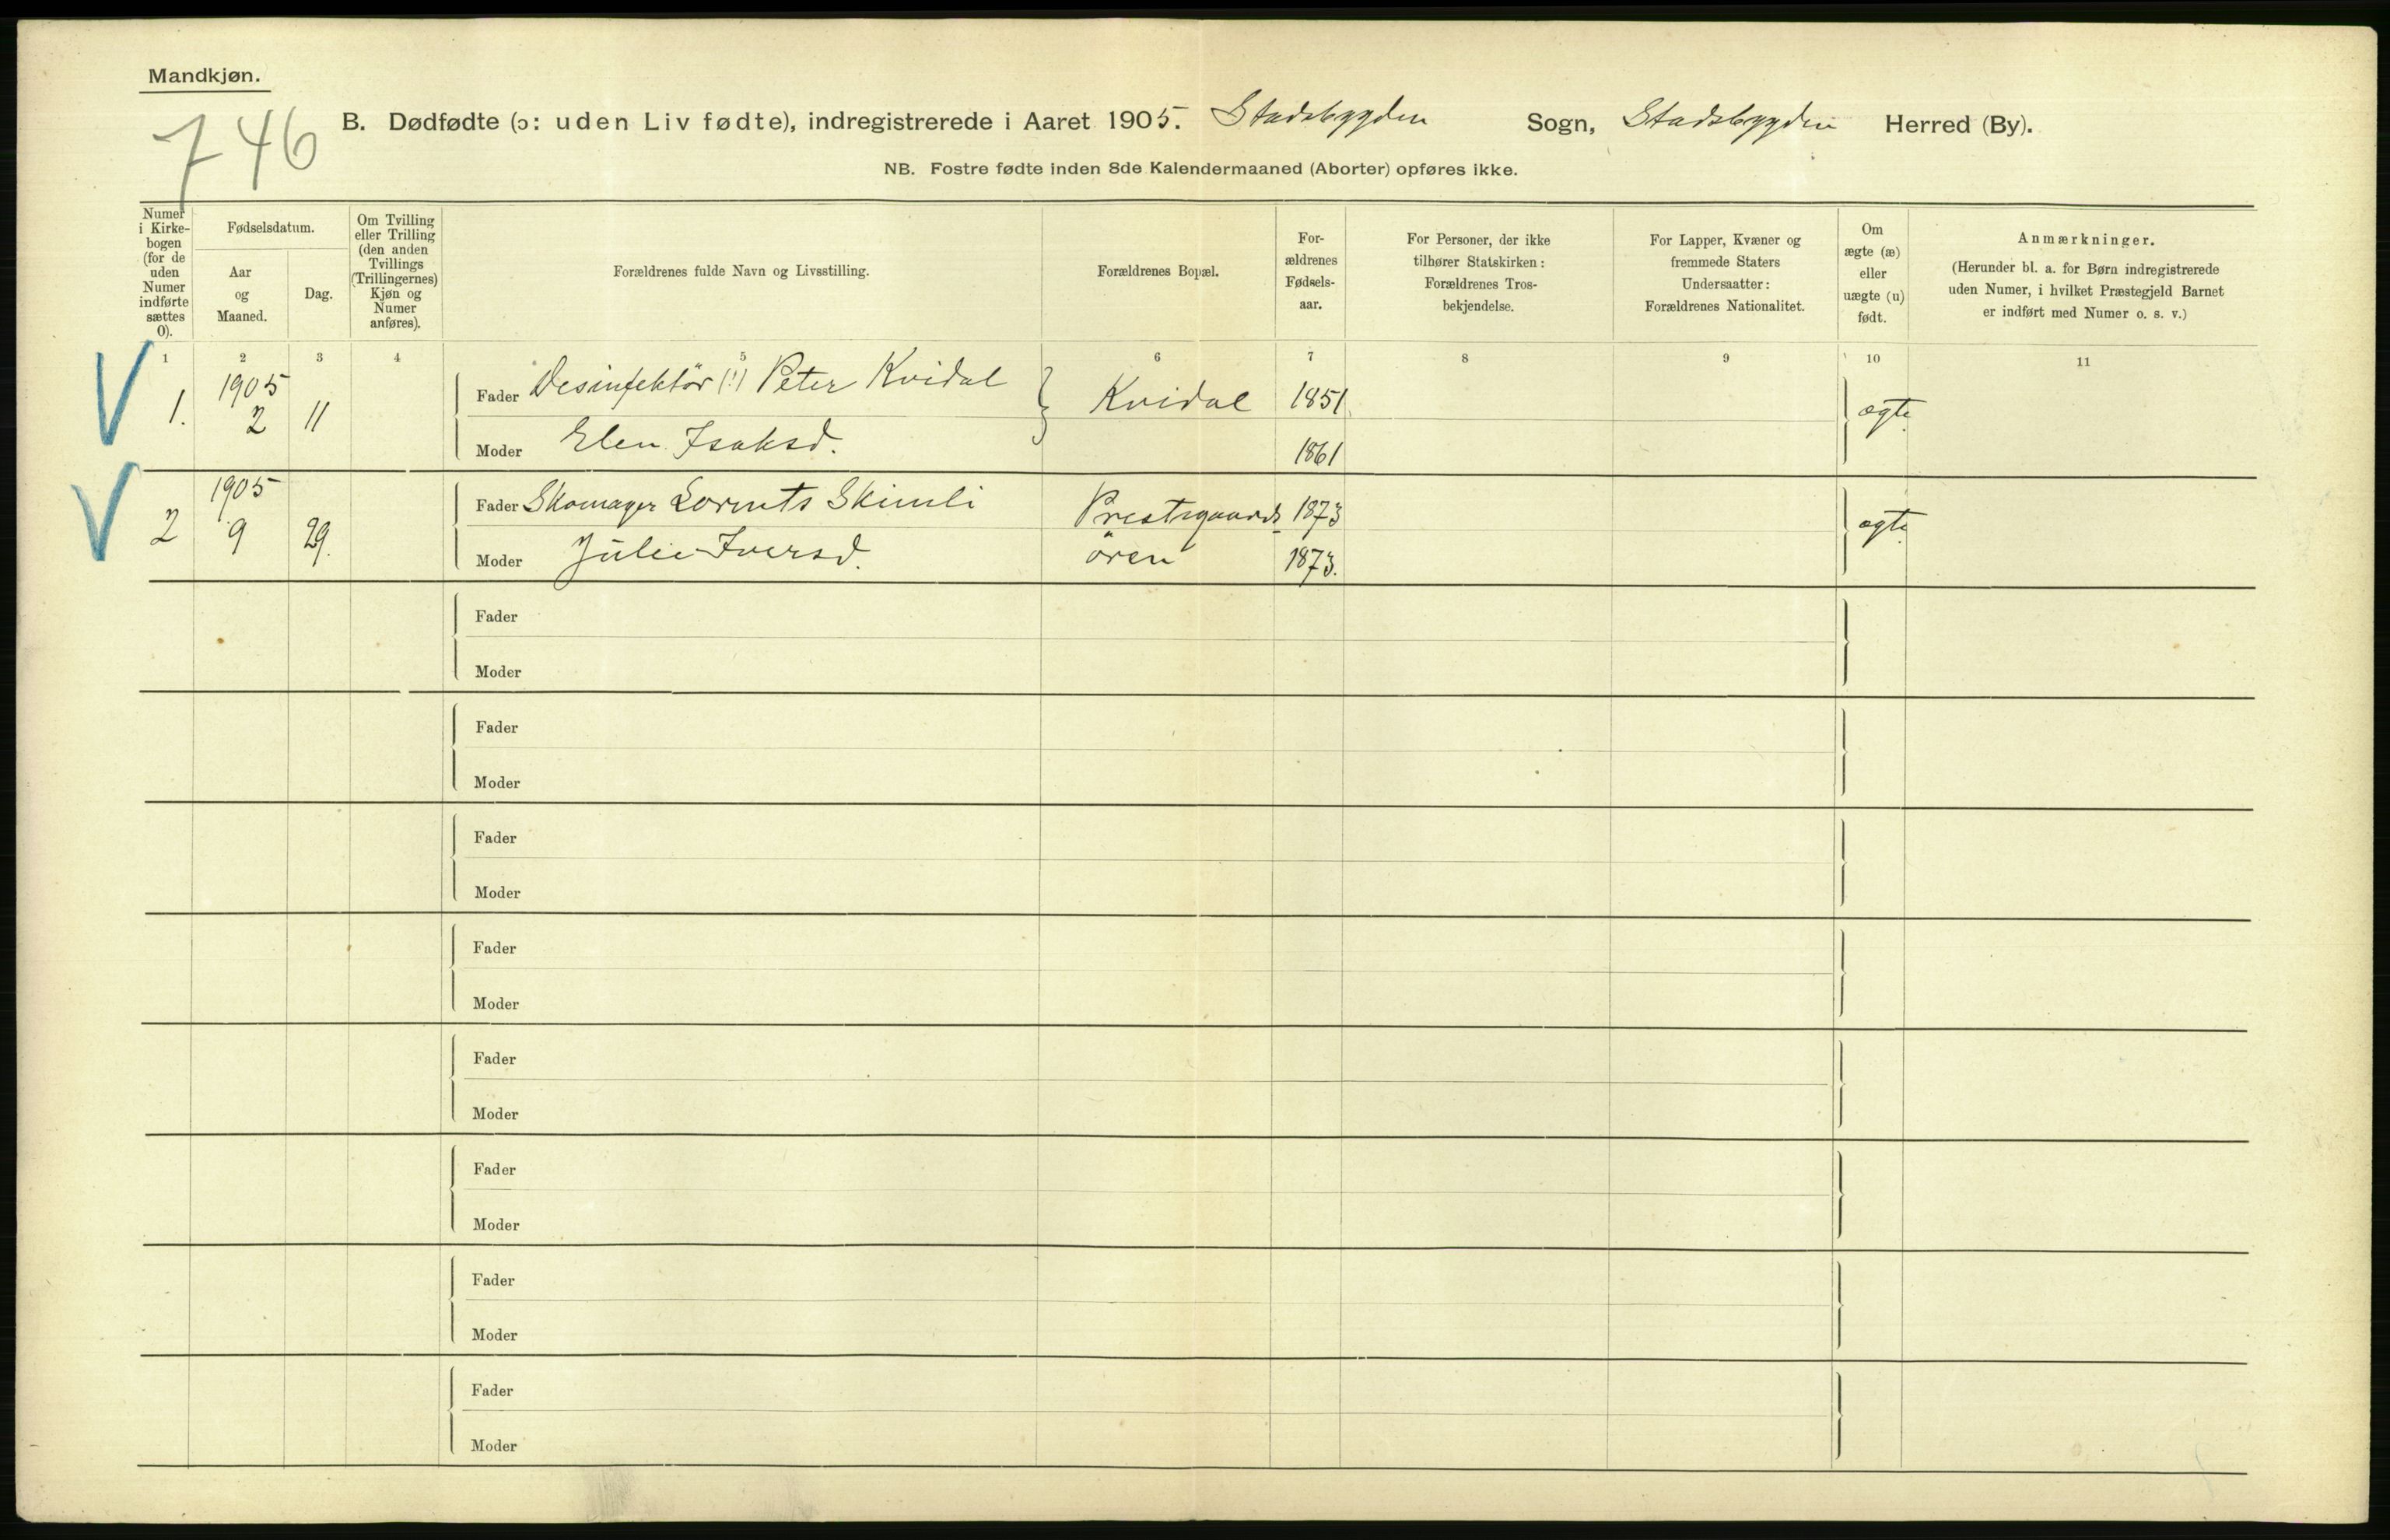 Mandkjøn.
746
B. Dødfødte (ɔ: uden Liv fødte), indregistrerede i Aaret 1905. Stadsbygden Sogn, Stadsbygden Herred (By).
NB. Fostre fødte inden 8de Kalendermaaned (Aborter) opføres ikke.
Numer
i Kirke-
bogen
(for de
uden
Numer
indførte
sættes
0).
Fødselsdatum.
Aar
og
Maaned.
Dag.
Om Tvilling
eller Trilling
(den anden
Tvillings
(Trillingernes)
Kjøn og
Numer
anføres).
Forældrenes fulde Navn og Livsstilling.
Forældrenes Bopæl.
For-
ældrenes
Fødsels-
aar.
For Personer, der ikke
tilhører Statskirken:
Forældrenes Tros-
bekjendelse.
For Lapper, Kvæner og
fremmede Staters
Undersaatter:
Forældrenes Nationalitet.
Om
ægte (æ)
eller
uægte (u)
født.
Anmærkninger.
(Herunder bl. a. for Børn indregistrerede
uden Numer, i hvilket Præstegjeld Barnet
er indført med Numer o. s. v.)
1 2 3 4 5 6 7 8 9 10 11
1905
1. 2 11
Fader Desinfektör (!) Peter Kvidal Kvidal 1851 ægte
Moder Elen Isaksd. 1861
1905
2 9 29.
Fader Skomager Lornts Skimli Prestegaards 1873 ægte
Moder Julie Iversd. ören 1873.
Fader
Moder
Fader
Moder
Fader
Moder
Fader
Moder
Fader
Moder
Fader
Moder
Fader
Moder
Fader
Moder